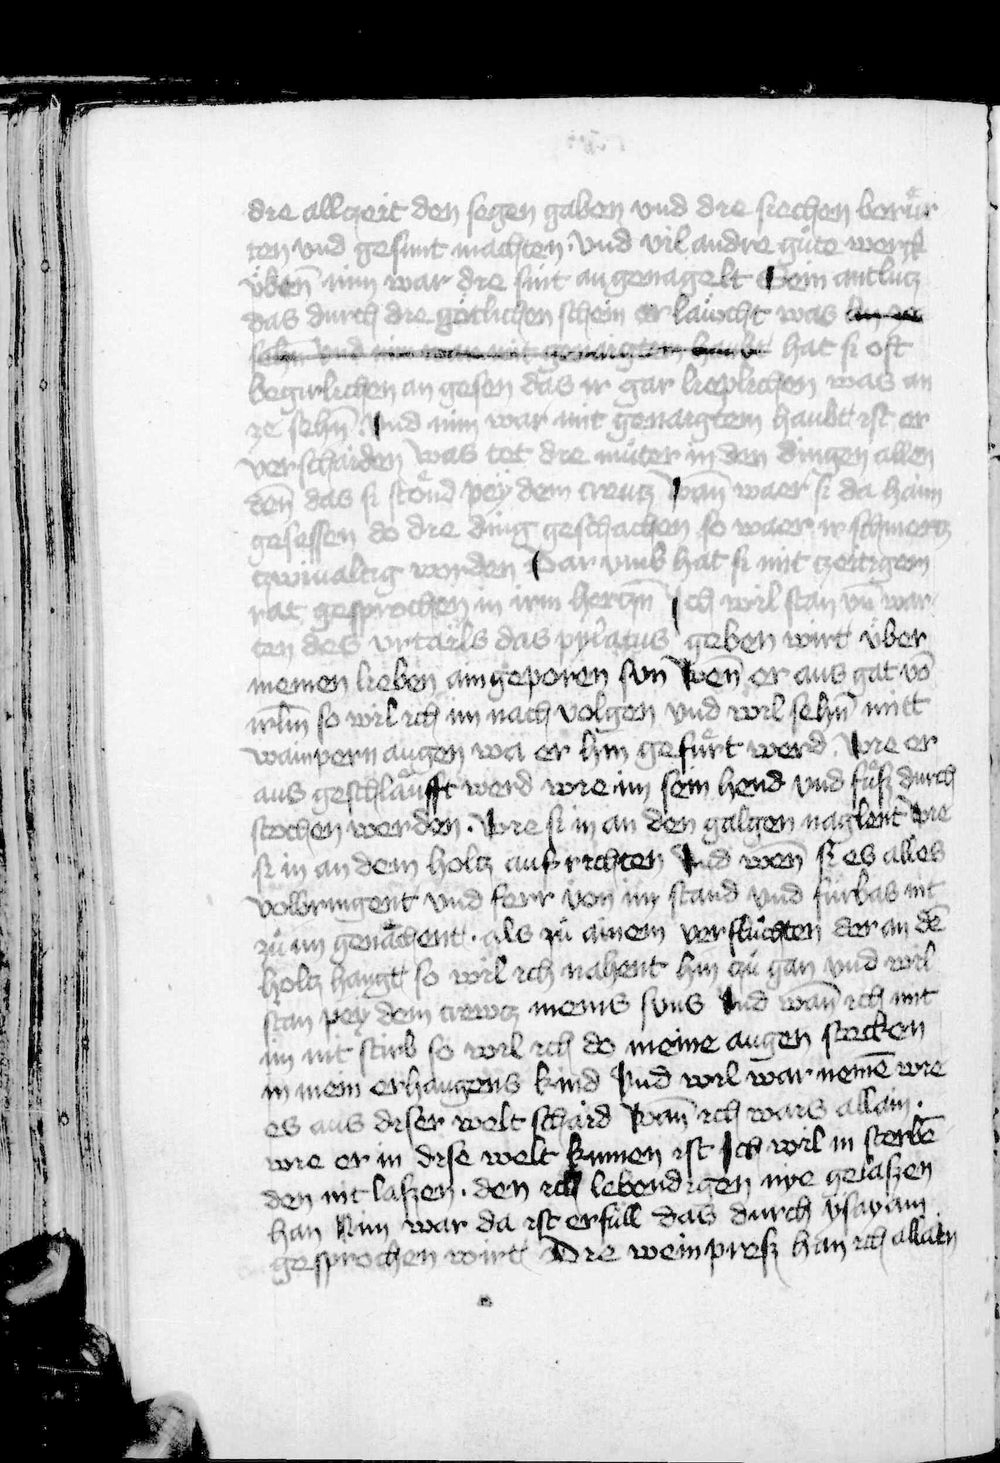 die allczeit den segen gaben vnd die siechen berůr
ten vnd gesunt machten. Vnd vil andre gůte werck
vben̄ nim war die sint angenagelt Sein antlucz
das durch die gotlichen schein erlaucht was an ze
sehn̄ vnd nim war mit genaigtem haubt hat si oft
begirlichen an gesen das ir gar lieplichen was an
ze sehn̄. Vnd nim war mit genaigtem haubt ist er
verschaiden Was tet die můter in den dingen allen
den̄ das si stönd pey dem creutz wan̄ waer si da haim
gesessen do die ding geschachen so waer ir schmertz
czwiualtig worden Dar vmb hat si mit czeitigem
rat gesprochen in irm hertzn̄ Ich wil stan vn̄ war
ten des vrtails das pylatus geben wirt über
meinen lieben aingeporen sun Wen̄ er aus gat vō
irl̄m so wil ich im nach volgen vnd wil sehn̄ mitt
wainpern augen wa er hin gefůrt werd. Wie er
aus geschlaufft werd wie im sein hend vnd fůsz durch
stochen werden. Wie si in an den galgen naglent Wie
si in an dem holtz auf richten Vnd wen̄ si es alles
volbringent vnd ferr von im stand vnd fürbas nit
zů im genächent. als zů ainem verflůchten der an dē
holtz hangt so wil ich nahent hin zů gan vnd wil
stan pey dem crewcz meins suns Vnd wan̄ ich mit
im nit stirb so wil ich do meine augen stecken
in mein erhangens kind Vnd wil war nemē wie
es aus diser welt schaid Wan̄ ich wais allain.
wie er in dise welt kumen ist Ich wil in sterbē
den nit laszen. den ich lebendigen nye gelaszen
han Nim war da ist erfüll das durch ysayam
gesprochen wirt Die weinpresz han ich allain